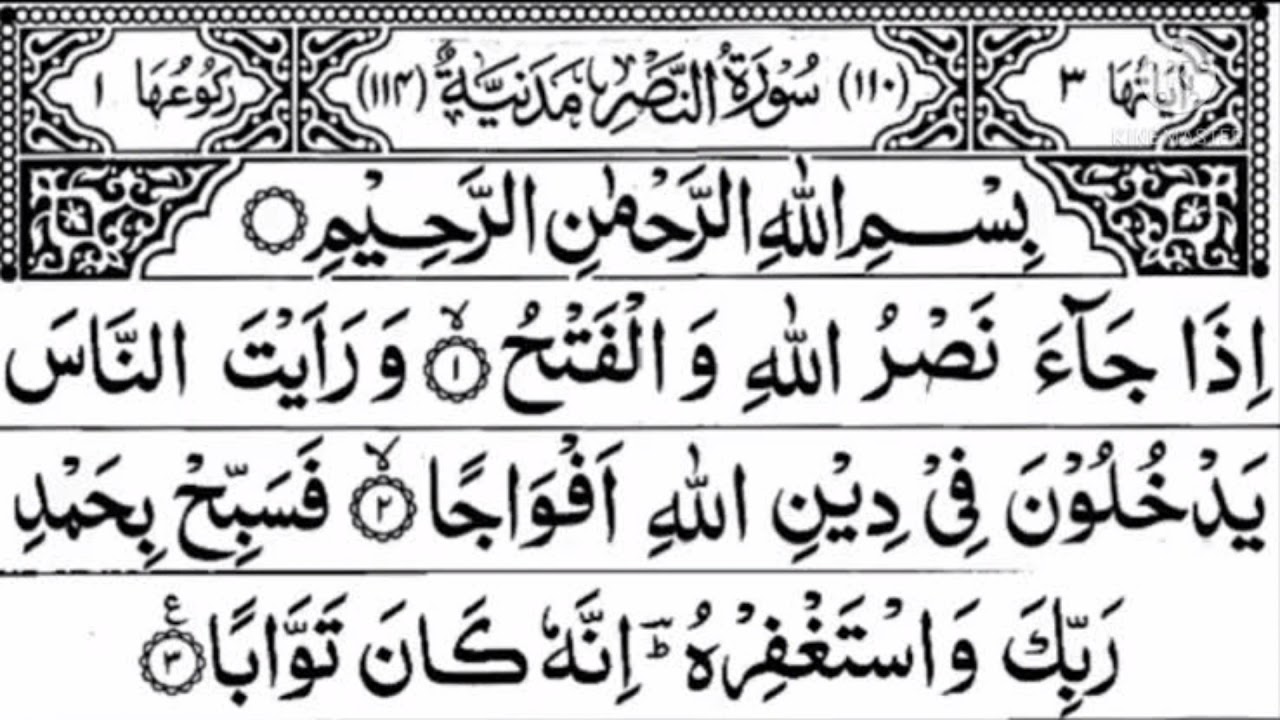 اٰيَاتُهَا ٣ (١١٠) سُوْرَةُ النَّصْرِ مَدَنِيَّةٌ (١١٤) رُكُوْعُهَا ١
KINEMASTER
بِسْمِ اللّٰهِ الرَّحْمٰنِ الرَّحِيْمِ ۝
اِذَا جَآءَ نَصْرُ اللّٰهِ وَ الْفَتْحُ ۙ‏﴿١﴾ وَ رَاَيْتَ النَّاسَ
يَدْخُلُوْنَ فِىْ دِيْنِ اللّٰهِ اَفْوَاجًا ۙ‏﴿٢﴾ فَسَبِّحْ بِحَمْدِ
رَبِّكَ وَ اسْتَغْفِرْهُ ؕ اِنَّهٗ كَانَ تَوَّابًا ﴿٣﴾ ع